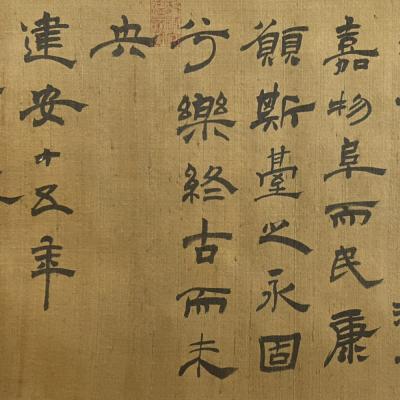 嘉物阜而民康
願斯臺之永固
兮樂終古而未
央
建安十五年